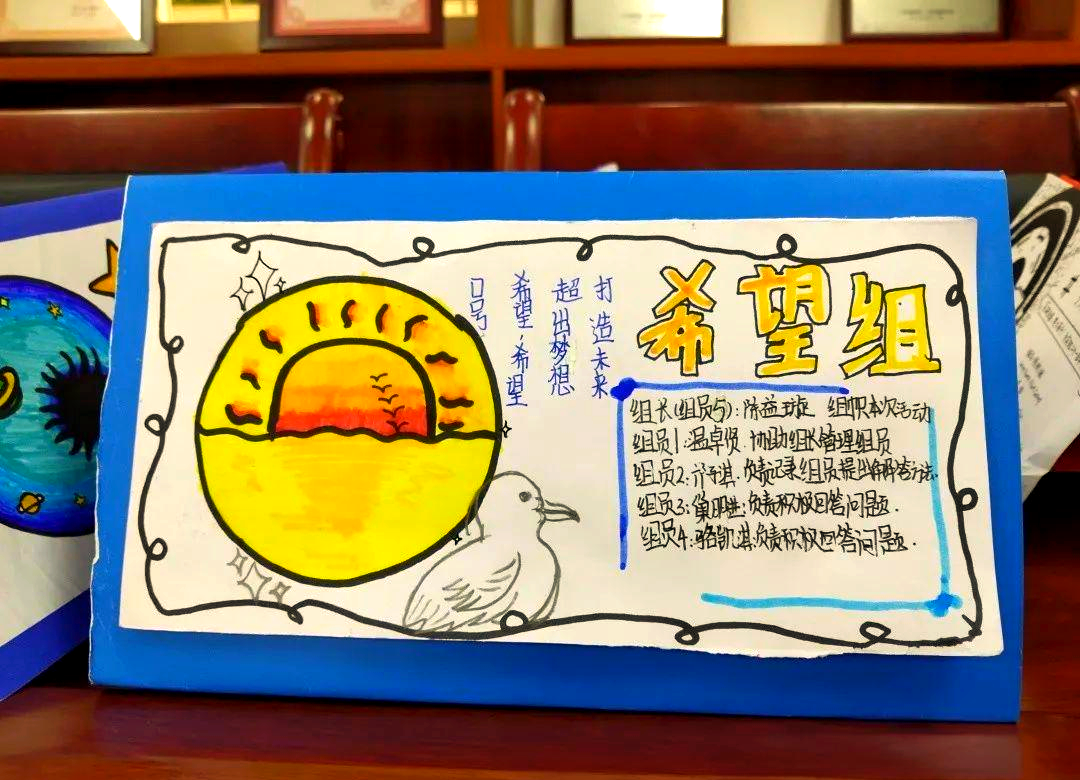 希望组
口号:
希望,希望
超出梦想
打造未来
组长(组员5):陈益 组织本次活动
组员1:温卓贤.协助组长管理组员
组员2:琪.负责记录组员提出解答方法.
组员3:负责积极回答问题.
组员4:骆凯淇:负责积极回答问题.